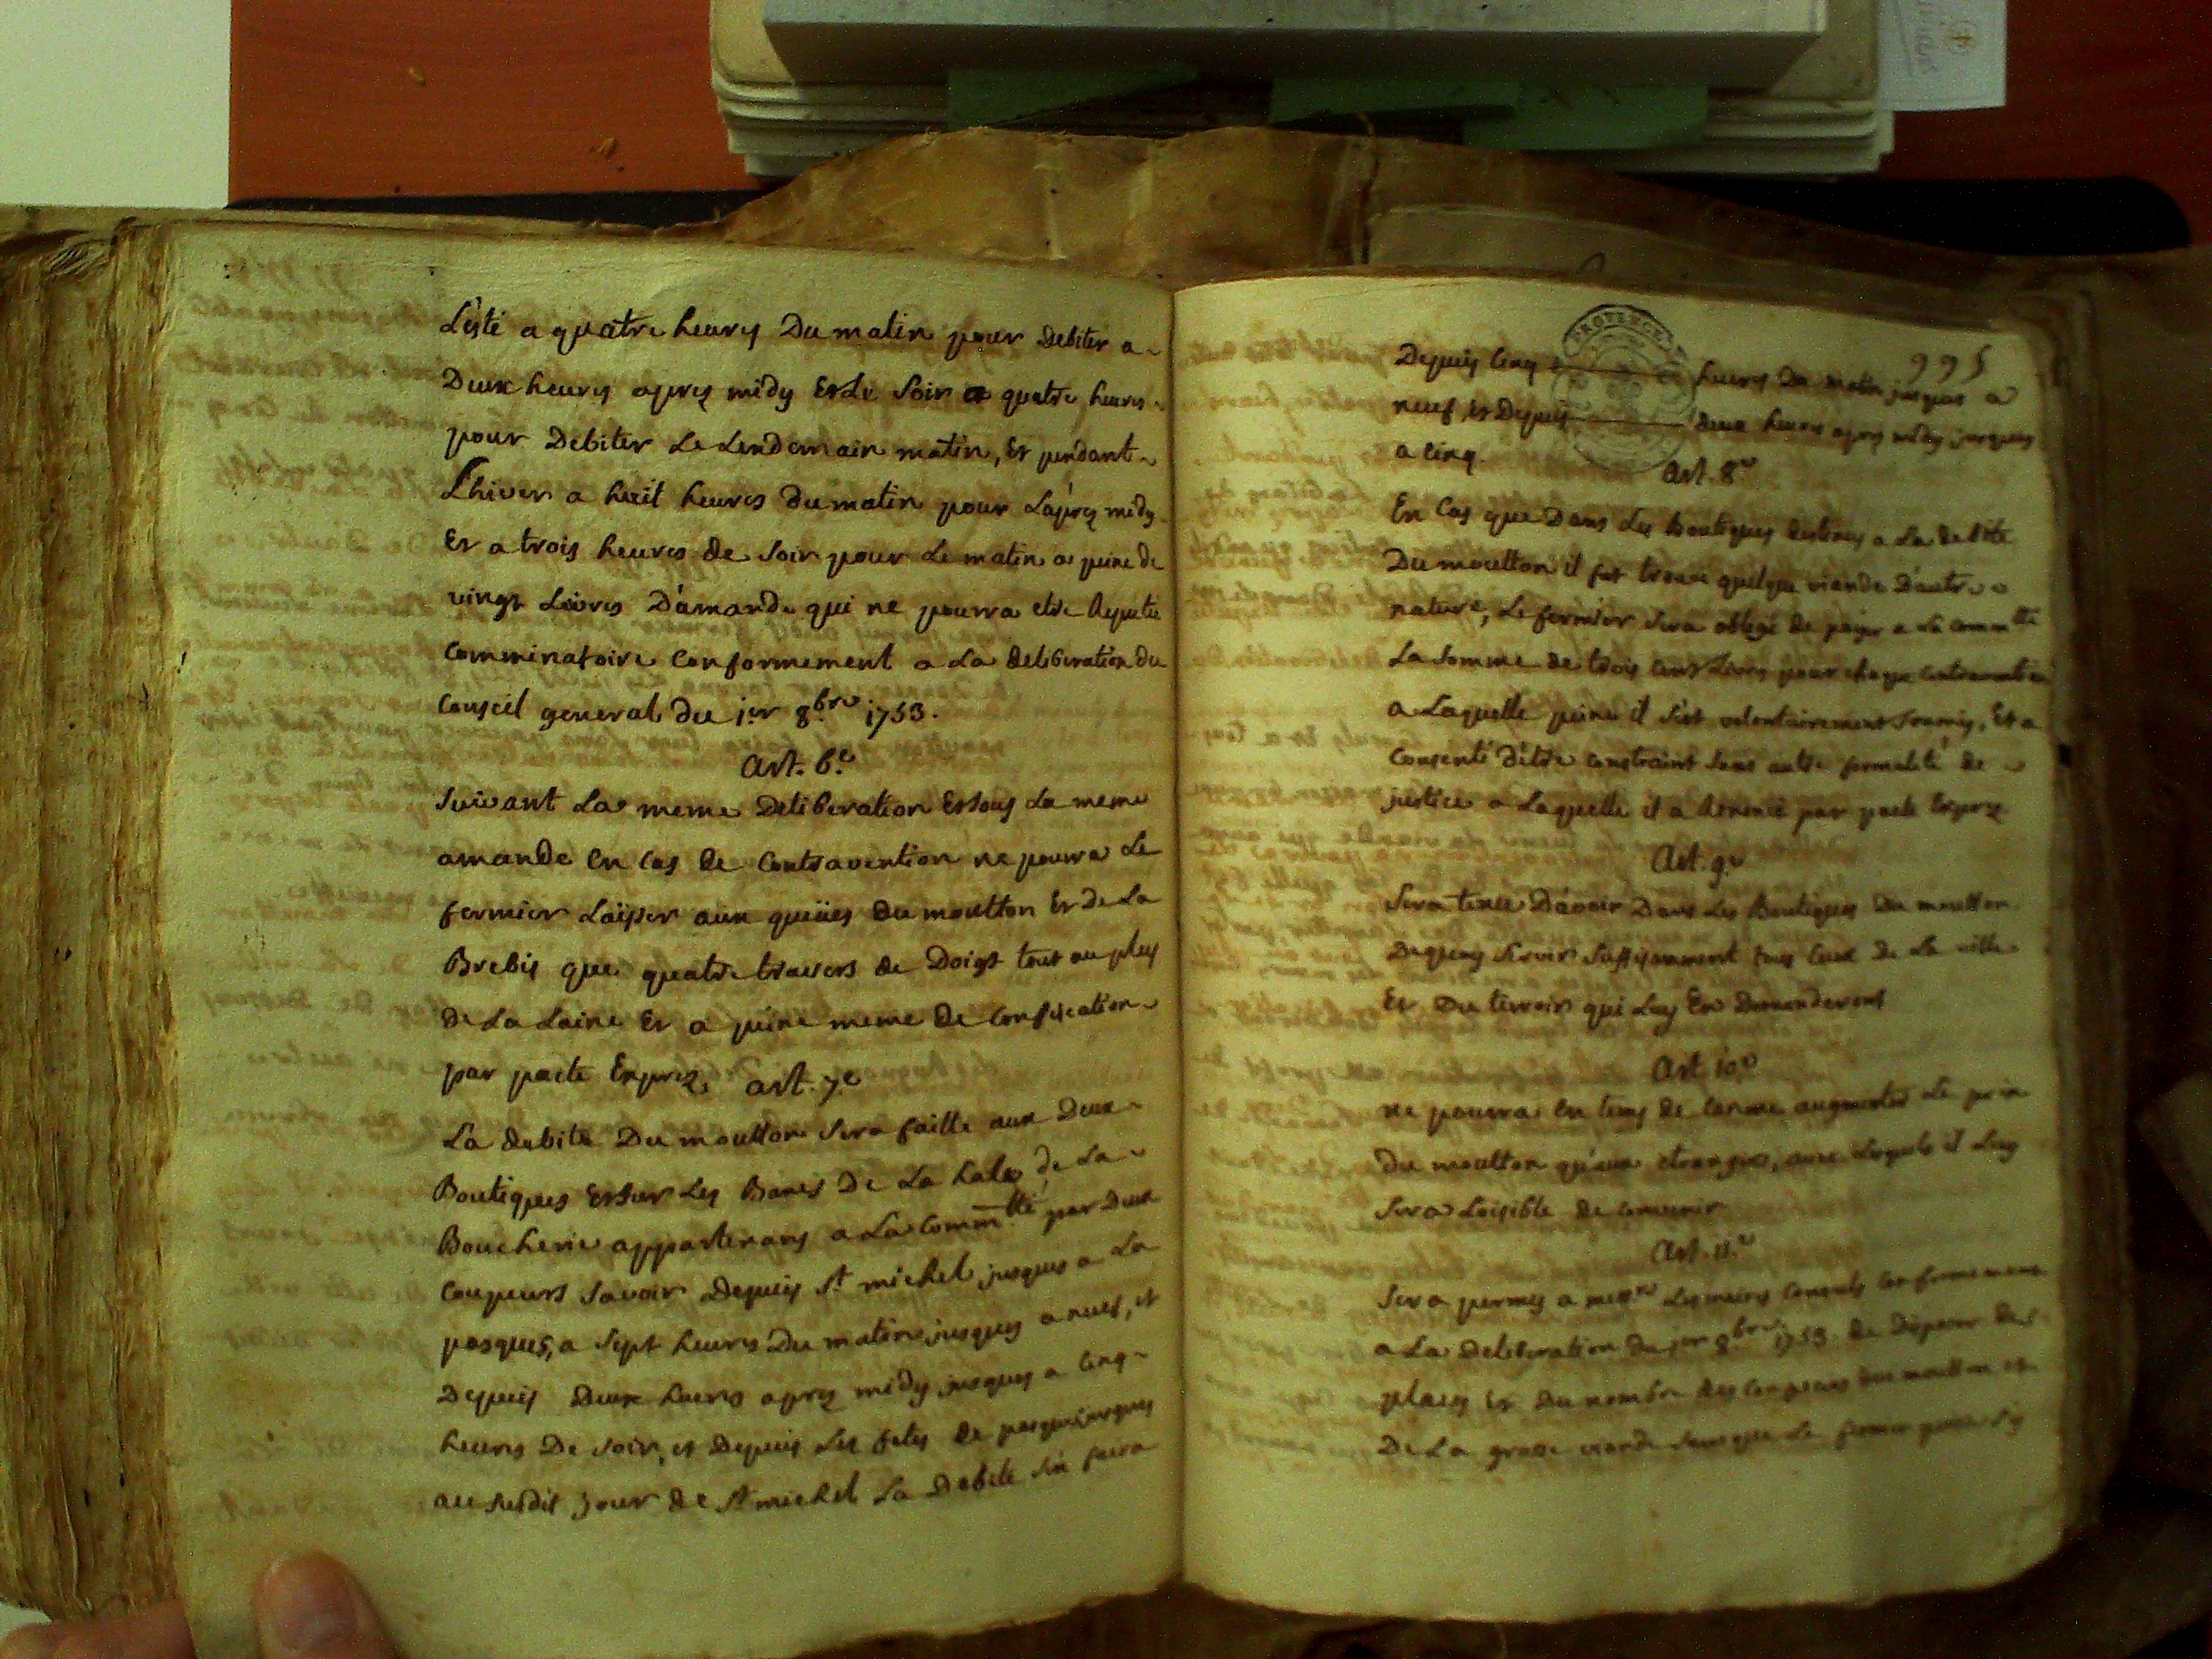 L'esté a quatre heures Du matin pour Debiter a
Deux heures apres midy Et Le Soir a quatre heures
pour Debiter Le Lendemain matin, Et pendant
L'hiver a huit heures Du matin pour L'apres midy
Et a trois heures de Soir pour Le matin a peine de
vingt Livres D'amande qui ne pourra etre Reputée
Comminatoire Conformement a La deliberation du
Conseil general du 1er 8bre 1753.
Art. 6e
Suivant La meme Deliberation Et Sous La meme
amande En Cas de Contravention ne pourra Le
fermier Laisser aux queües du moutton Et de La
Brebis que quatre travers de Doigt tout au plus
De La Laine Et a peine meme de Confiscation
par pacte Exprez. art. 7e
La debite Du moutton Sera faitte aux Deux
Boutiques Et Sur Les Bancs De La hale de La
Boucherie appartenans a La Commtté par Deux
Coupeurs Savoir Depuis St michel jusques a La
pasques, a Sept heures Du matin jusques a neuf, et
Depuis Deux heures apres midy jusques a Cinq
heures De Soir, et Depuis Les fetes de pasques jusques
au Susdit jour de St michel La Debite S'en faira
PROVENCE
995
Depuis Cinq heures Du matin jusques a
neuf Et Depuis deux heures apres midy jusques
a Cinq.
Art. 8e
En Cas que Dans Les Boutiques destinées a La debite
Du moutton il fut trouvé quelque viande D'autre
nature, Le fermier Sera obligé de payer a La Commtté
La Somme de trois Cens Livres pour chaque Contravention
a Laquelle peine il S'est volontairement Soumis, Et a
Consenti d'etre Constraint Sans autre formalité de
justice a Laquelle il a Renoncé par pacte Exprez
Art. 9e
Sera tenu D'avoir Dans Les Boutiques Du moutton
Dequoy Servir Suffisamment tous Ceux de La ville
Et Du terroir qui Luy En Demanderont
Art. 10e
ne pourra En tems de Careme augmenter Le prix
du moutton qu'aux etrangers, avec Lesquels il Luy
Sera Loisible de Convenir
Art. 11e
Sera permis a messrs Les maires Consuls Conformement
a La Deliberation du 1er 8bre 1753. de Disposer des
places Et Du nombre des Coupeurs Du moutton et
De La grosse viande Sans que Le fermier puisse S'y